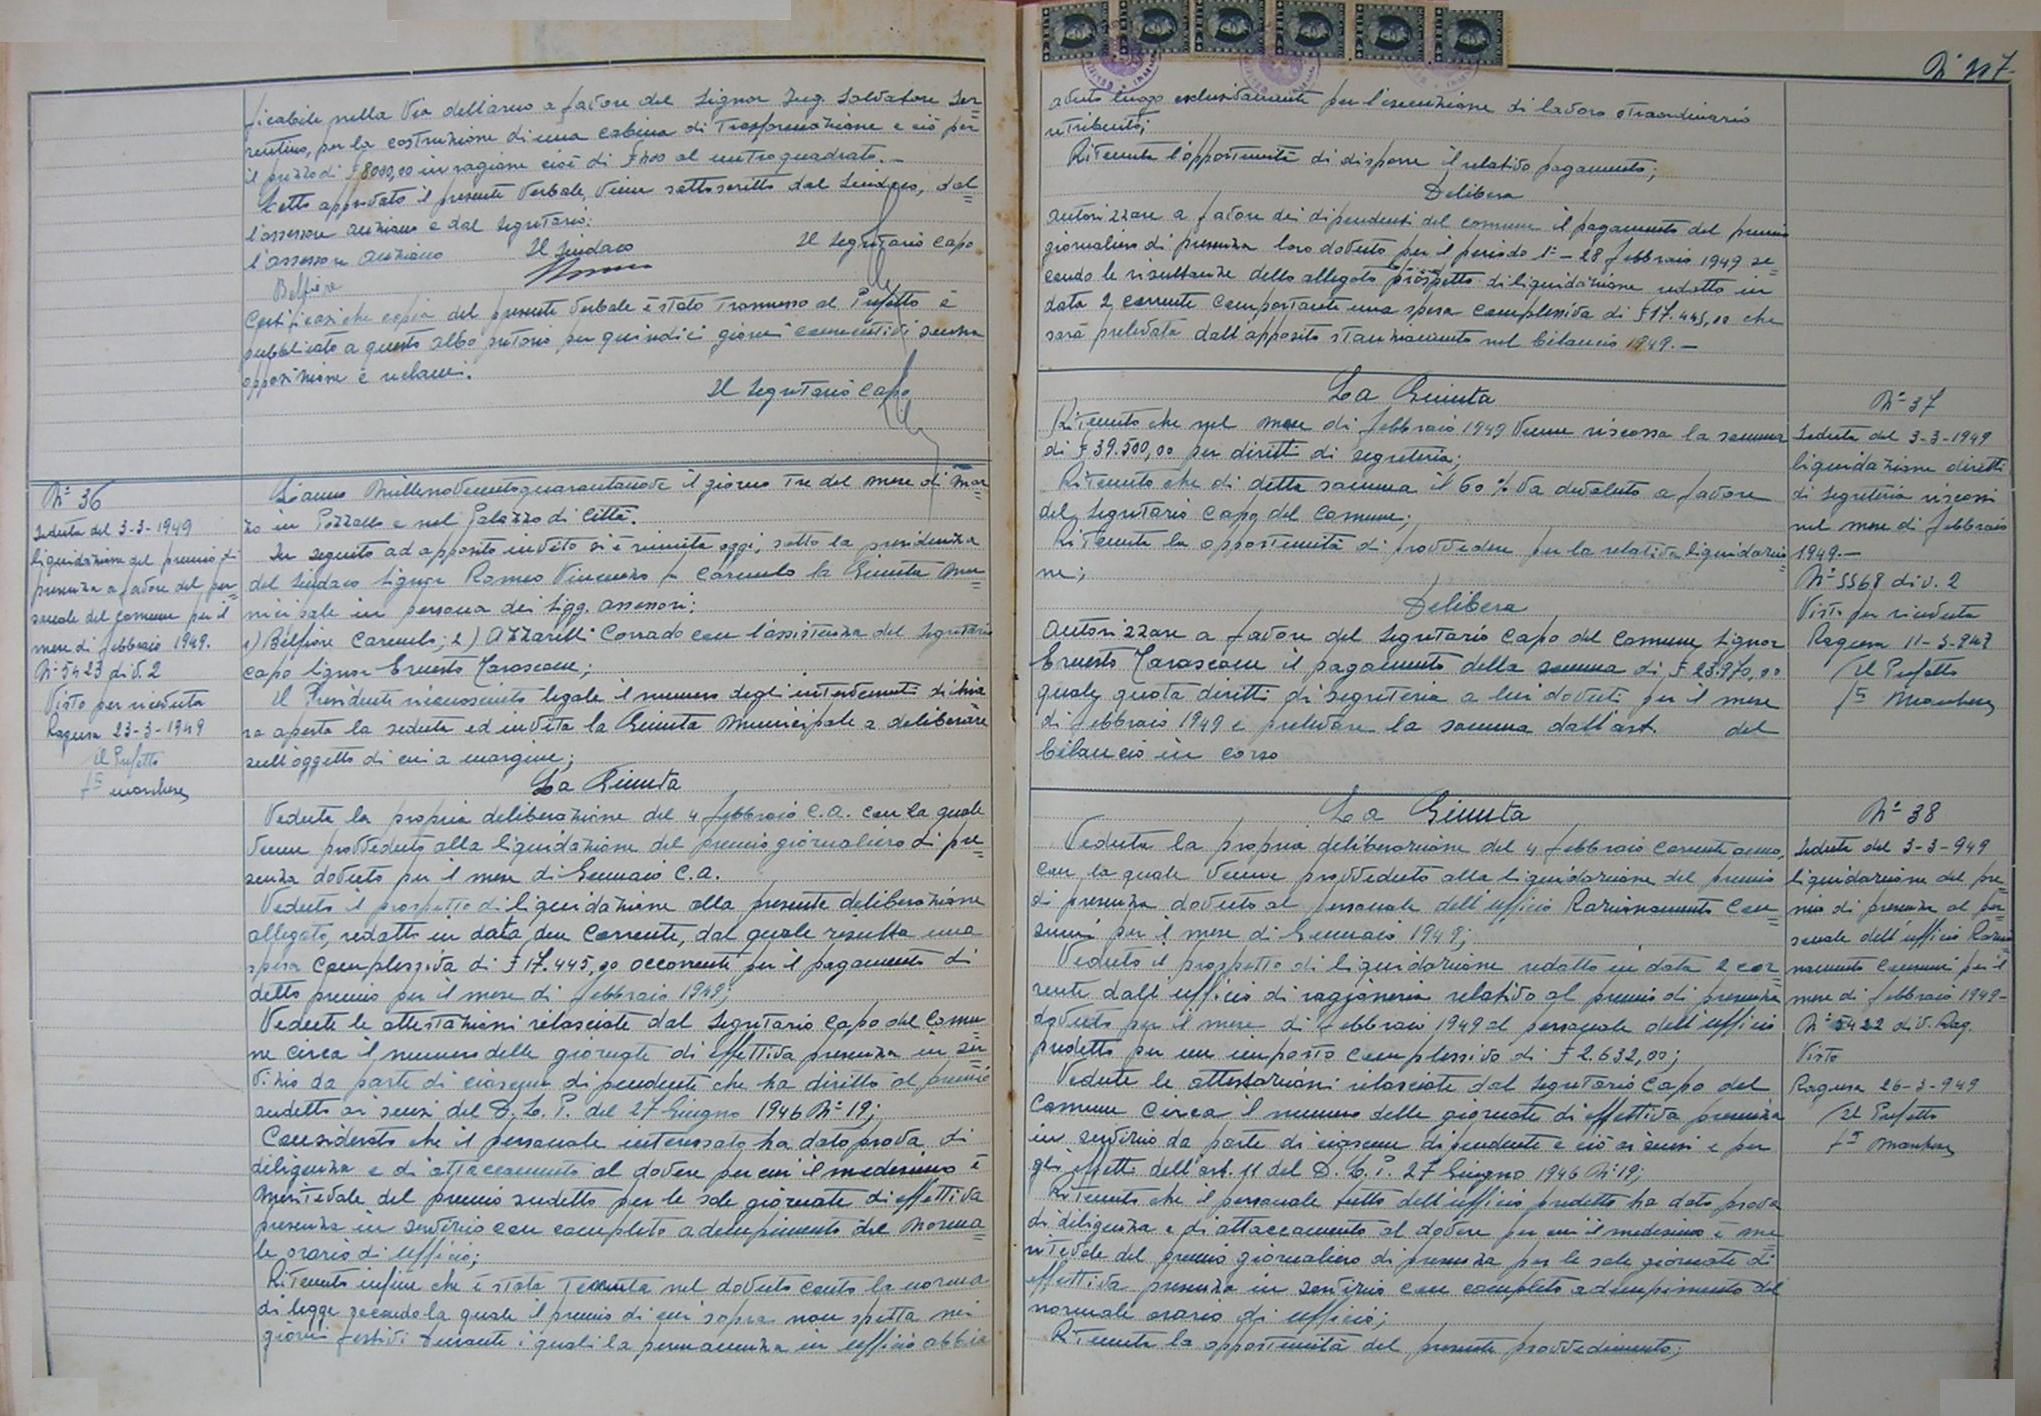 ficabile nella Via dell'arno a favore del Signor Ing. Salvatore Sor=
rentino, per la costruzione di una cabina di Trasformazione e ciò per
il prezzo di £8000,00 in ragione cioè di £400 al metro quadrato.-
Letto approvato il presente Verbale, viene sottoscritto dal Sindaco, dal=
l'assessore anziano e dal Segretario:
l'assessore anziano Il Sindaco Il Segretario Capo
Belfiore
Certificasi che copia del presente Verbale è stato Trasmesso al Prefetto e
pubblicato a questo albo pretorio per quindici giorni consecutivi senza
opposizione e reclami.
Il Segretario Capo
N° 36
Seduta del 3-3-1949
liquidazione del premio di
presenza a favore del per=
sonale del comune per il
mese di febbraio 1949.
N° 5423 div. 2
Visto per ricevuta
Ragusa 23-3-1949
il Prefetto
L'anno Millenovecentoquarantanove il giorno Tre del mese di Mar=
zo in Pozzallo e nel Palazzo di Città.
In seguito ad apposito invito si è riunita oggi, sotto la presidenza
del Sindaco Signor Romeo Vincenzo fu Carmelo la Giunta Mu=
nicipale in persona dei Sigg. assessori:
1) Belfiore Carmelo; 2) Azzarelli Corrado con l'assistenza del Segretario
capo Signor Ernesto Tarascone;
Il Presidente riconosciuto legale il numero degli intervenuti dichia
ra aperta la seduta ed invita la Giunta Municipale a deliberare
sull'oggetto di cui a margine;
La Giunta
Veduta la propria deliberazione del 4 febbraio C.A. con la quale
venne provveduto alla liquidazione del premio giornaliero di pre=
senza dovuto per il mese di Gennaio C.A.
Veduto il prospetto di liquidazione alla presente deliberazione
allegato, redatto in data due Corrente, dal quale risulta una
spesa complessiva di £17.445,00 occorrente per il pagamento di
detto premio per il mese di febbraio 1949;
Vedute le attestazioni rilasciate dal Segretario Capo del Comu
ne circa il numero delle giornate di effettiva presenza in ser=
vizio da parte di ciascun dipendente che ha diritto al premio
sudetto ai sensi del D. L. P. del 27 Giugno 1946 N° 19;
Considerato che il personale interessato ha dato prova di
diligenza e di attaccamento al dovere per cui il medesimo è
meritevole del premio sudetto per le sole giornate di effettiva
presenza in servizio con completo adempimento del norma=
le orario di ufficio;
Ritenuto infine che è stata tenuta nel dovuto conto la norma
di legge secondo la quale il premio di cui sopra non spetta nei
giorni festivi durante i quali la permanenza in ufficio abbia
N° 207
avuto luogo esclusivamente per l'esecuzione di lavoro straordinario
retribuito;
Ritenuta l'opportunità di disporre il relativo pagamento;
Delibera
autorizzare a favore dei dipendenti del comune il pagamento del premio
giornaliero di presenza loro dovuto per il periodo 1°-28 febbraio 1949 se=
condo le risultanze dello allegato prospetto di liquidazione redatto in
data 2 corrente comportante una spesa complessiva di £17.445,00 che
sarà prelevata dall'apposito stanziamento nel bilancio 1949.-
La Giunta
Ritenuto che nel mese di febbraio 1949 venne riscossa la somma
di £39.500,00 per diritti di segreteria;
Ritenuto che di detta somma il 60% va devoluto a favore
del Segretario Capo del Comune;
Ritenuta la opportunità di provvedere per la relativa liquidazio=
ne;
Delibera
Autorizzare a favore del Segretario Capo del Comune Signor
Ernesto Tarascone il pagamento della somma di £23.970,00
quale quota diritti di segreteria a lui dovuti per il mese
di febbraio 1949 e prelevare la somma dall'art. del
bilancio in corso
N° 37
Seduta del 3-3-1949
liquidazione diritti
di segreteria riscossi
nel mese di febbraio
1949.-
N° 5568 div. 2
Visto per ricevuta
Ragusa 11-3-949
Il Prefetto
La Giunta
Veduta la propria deliberazione del 4 febbraio corrente anno,
con la quale venne provveduto alla liquidazione del premio
di presenza dovuto al personale dell'ufficio Razionamento Con=
sumi per il mese di Gennaio 1949;
Veduto il prospetto di liquidazione redatto in data 2 cor
rente dall'ufficio di ragioneria relativo al premio di presenza
dovuto per il mese di febbraio 1949 al personale dell'ufficio
predetto per un importo complessivo di £2.632,00;
Vedute le attestazioni rilasciate dal Segretario Capo del
Comune circa il numero delle giornate di effettiva presenza
in servizio da parte di ciascun dipendente e ciò ai sensi e per
gli effetti dell'art. 11 del D. L. P. 27 Giugno 1946 N° 19;
Ritenuto che il personale tutto dell'ufficio predetto ha dato prova
di diligenza e di attaccamento al dovere per cui il medesimo è me
ritevole del premio giornaliero di presenza per le sole giornate di
effettiva presenza in servizio con completo adempimento del
normale orario di ufficio;
Ritenuta la opportunità del presente provvedimento;
N° 38
Seduta del 3-3-949
liquidazione del pre=
mio di presenza al per=
sonale dell'ufficio Razio
namento Consumi per il
mese di febbraio 1949-
N° 5422 div. Rag.
Visto
Ragusa 26-3-949
Il Prefetto